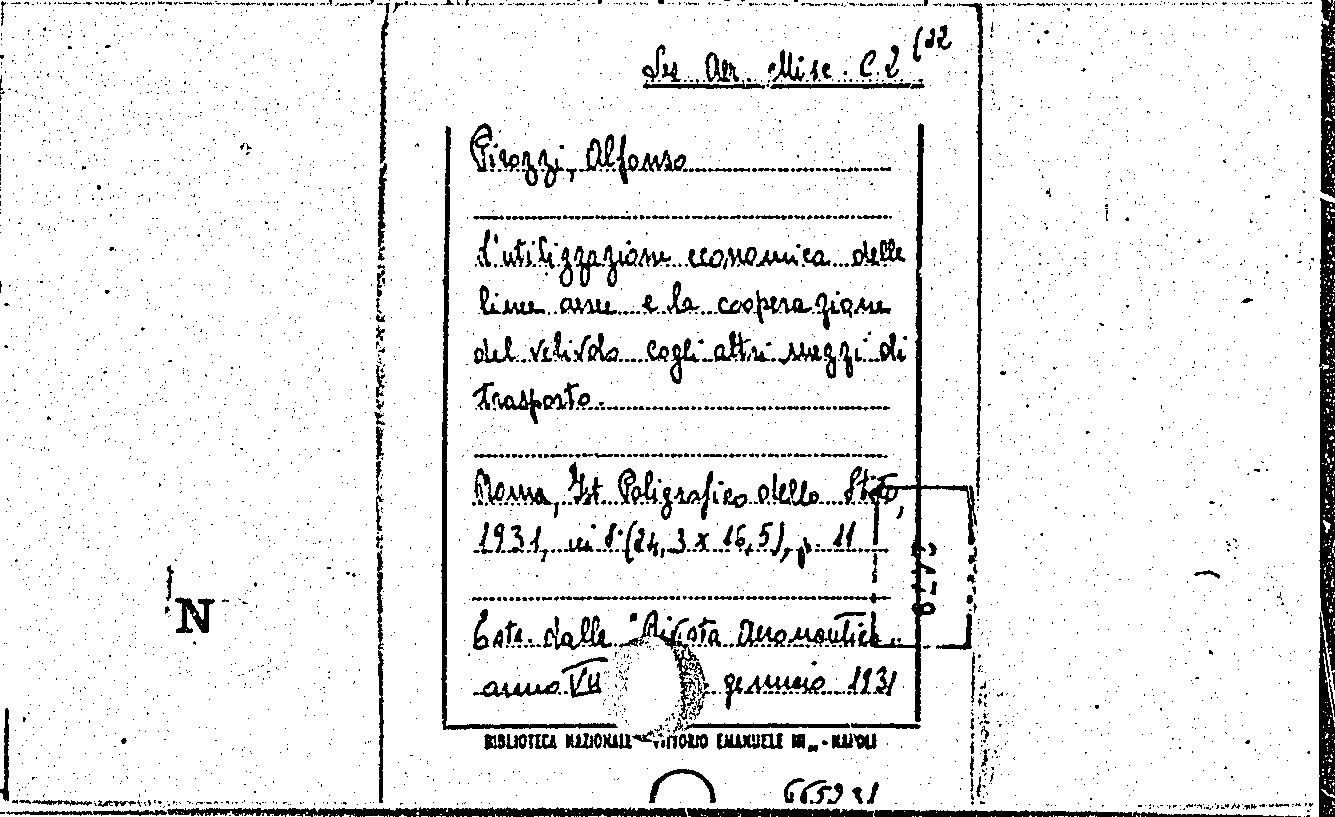 Sez Aer. Misc. C. 2 (32
Pirozzi, Alfonso
L'utilizzazione economica delle
linee aeree e la cooperazione
del velivolo cogli altri mezzi di
trasporto.
Roma, Ist. Poligrafico dello Stato,
1931, in 8° (24,3 x 16,5), p. 11
Estr. dalla "Rivista Aeronautica"
anno VII gennaio 1931
N
BIBLIOTECA NAZIONALE VITTORIO EMANUELE III - NAPOLI